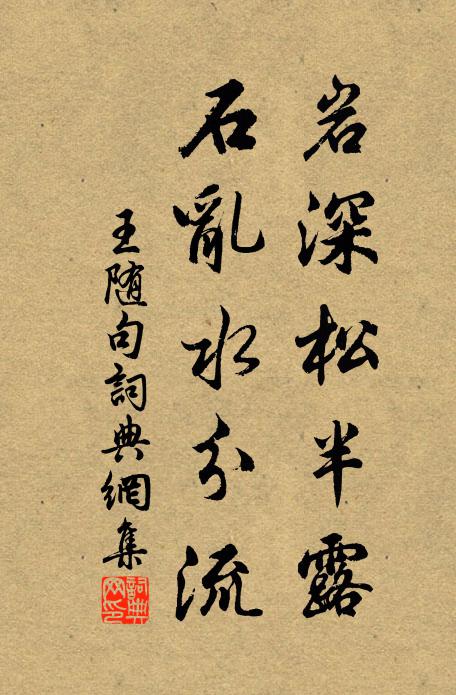 岩深松半露
石亂水分流
王随句詞典網集
詞典網印